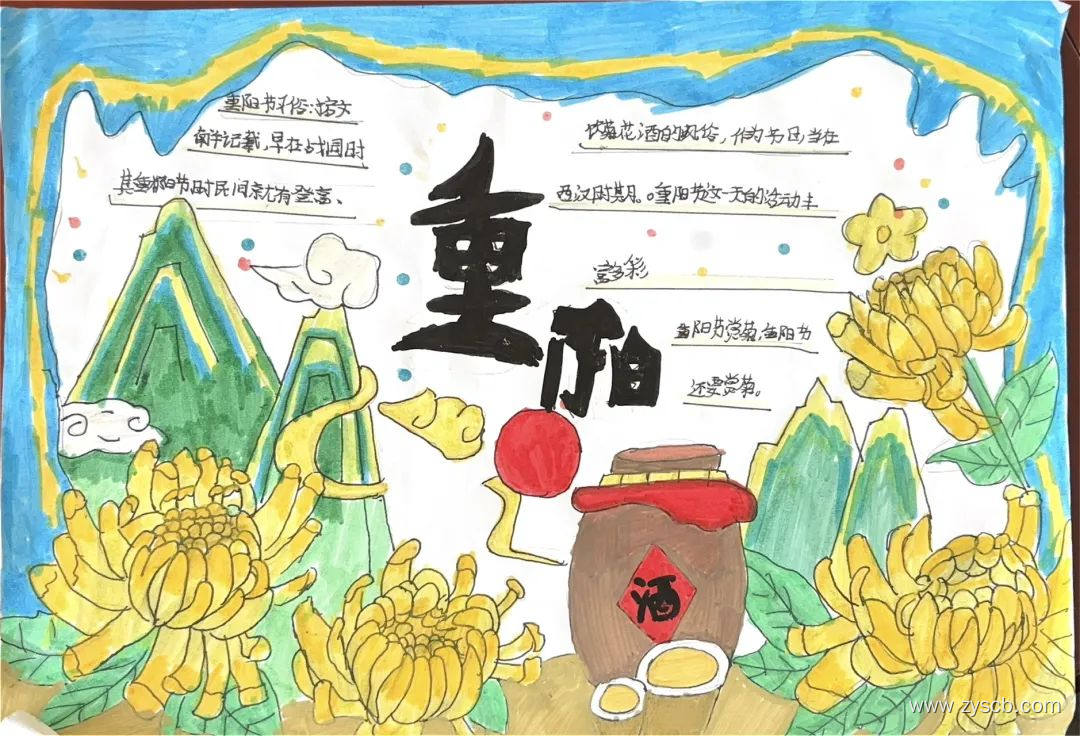 重阳节习俗:据文
献记载,早在战国时
其重阳节时民间就有登高、
饮菊花酒的风俗,作为节日,当在
西汉时期。重阳节这一天的活动丰
富多彩
重阳节赏菊,重阳节
还要赏菊。
重
阳
酒
www.zyscb.com